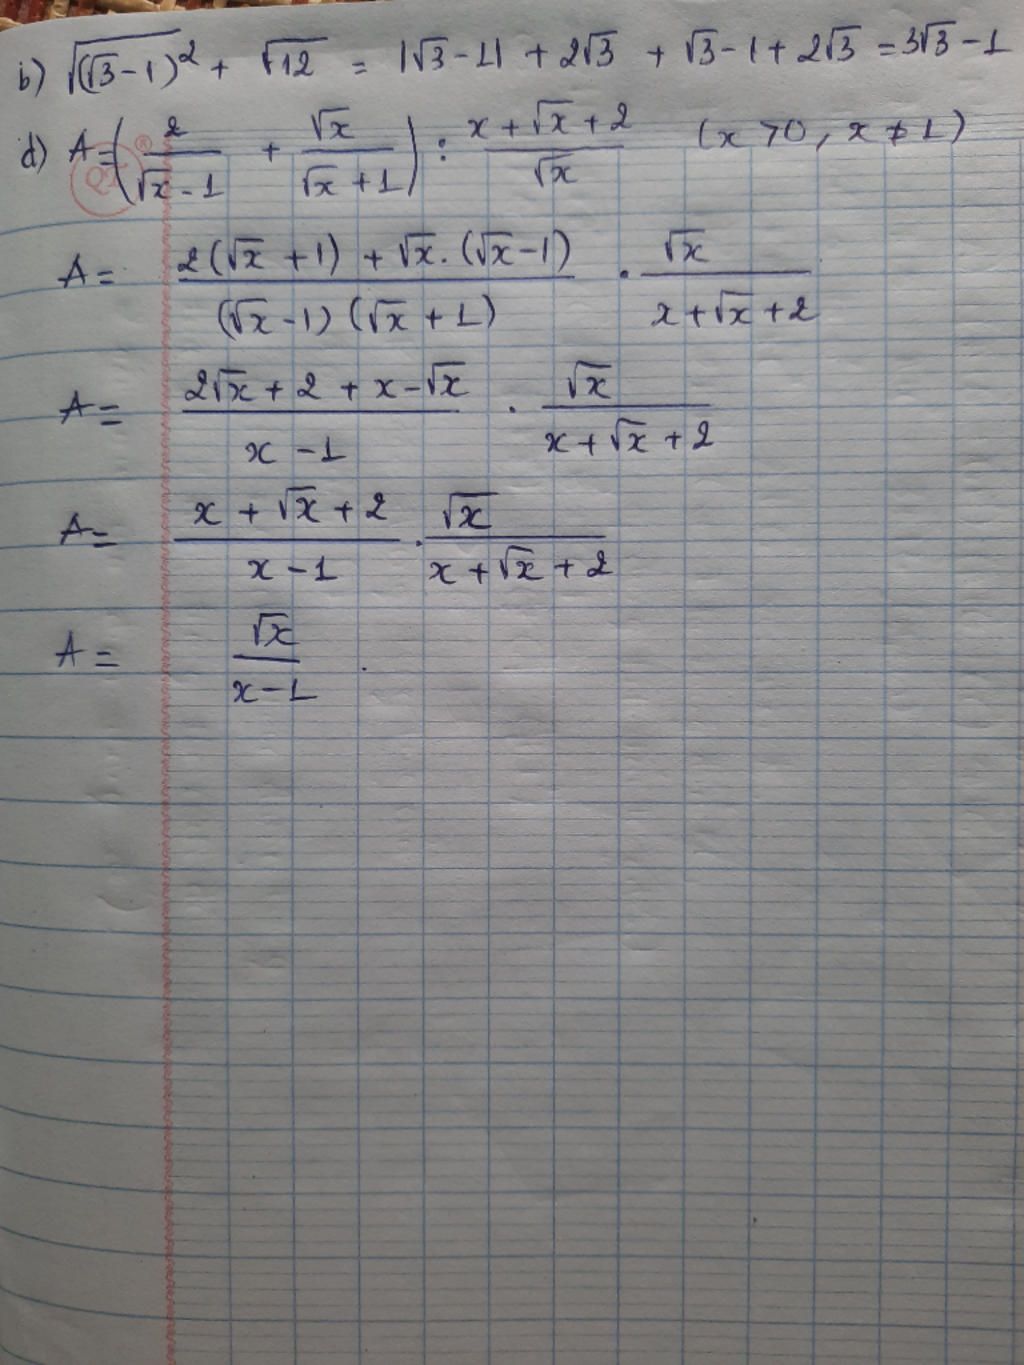 b) √(√3-1)² + √12 = |√3-1| + 2√3 + √3-1 + 2√3 = 3√3-1
d) A = (2/(√x-1) + √x/(√x+1)) : (x+√x+2)/√x (x>0, x≠1)
A = (2(√x+1) + √x.(√x-1))/((√x-1)(√x+1)) . √x/(x+√x+2)
A = (2√x+2+x-√x)/(x-1) . √x/(x+√x+2)
A = (x+√x+2)/(x-1) . √x/(x+√x+2)
A = √x/(x-1) .